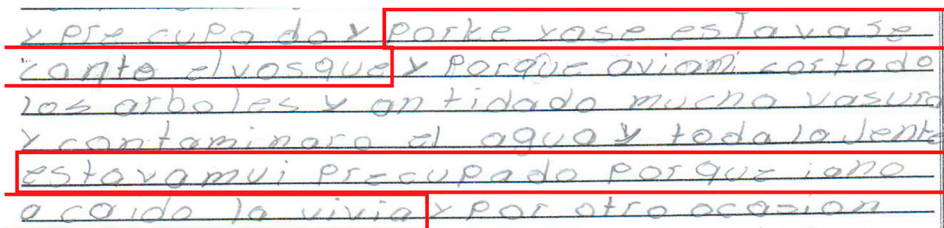 y pre cupado y porke yase estavase
canto elvosque y porque aviam cortado
los arboles y an tidado mucha vasura
y contaminaro el agua y toda la jente
estavamui precupado porque iano
a caido la vivia y por otro ocasion